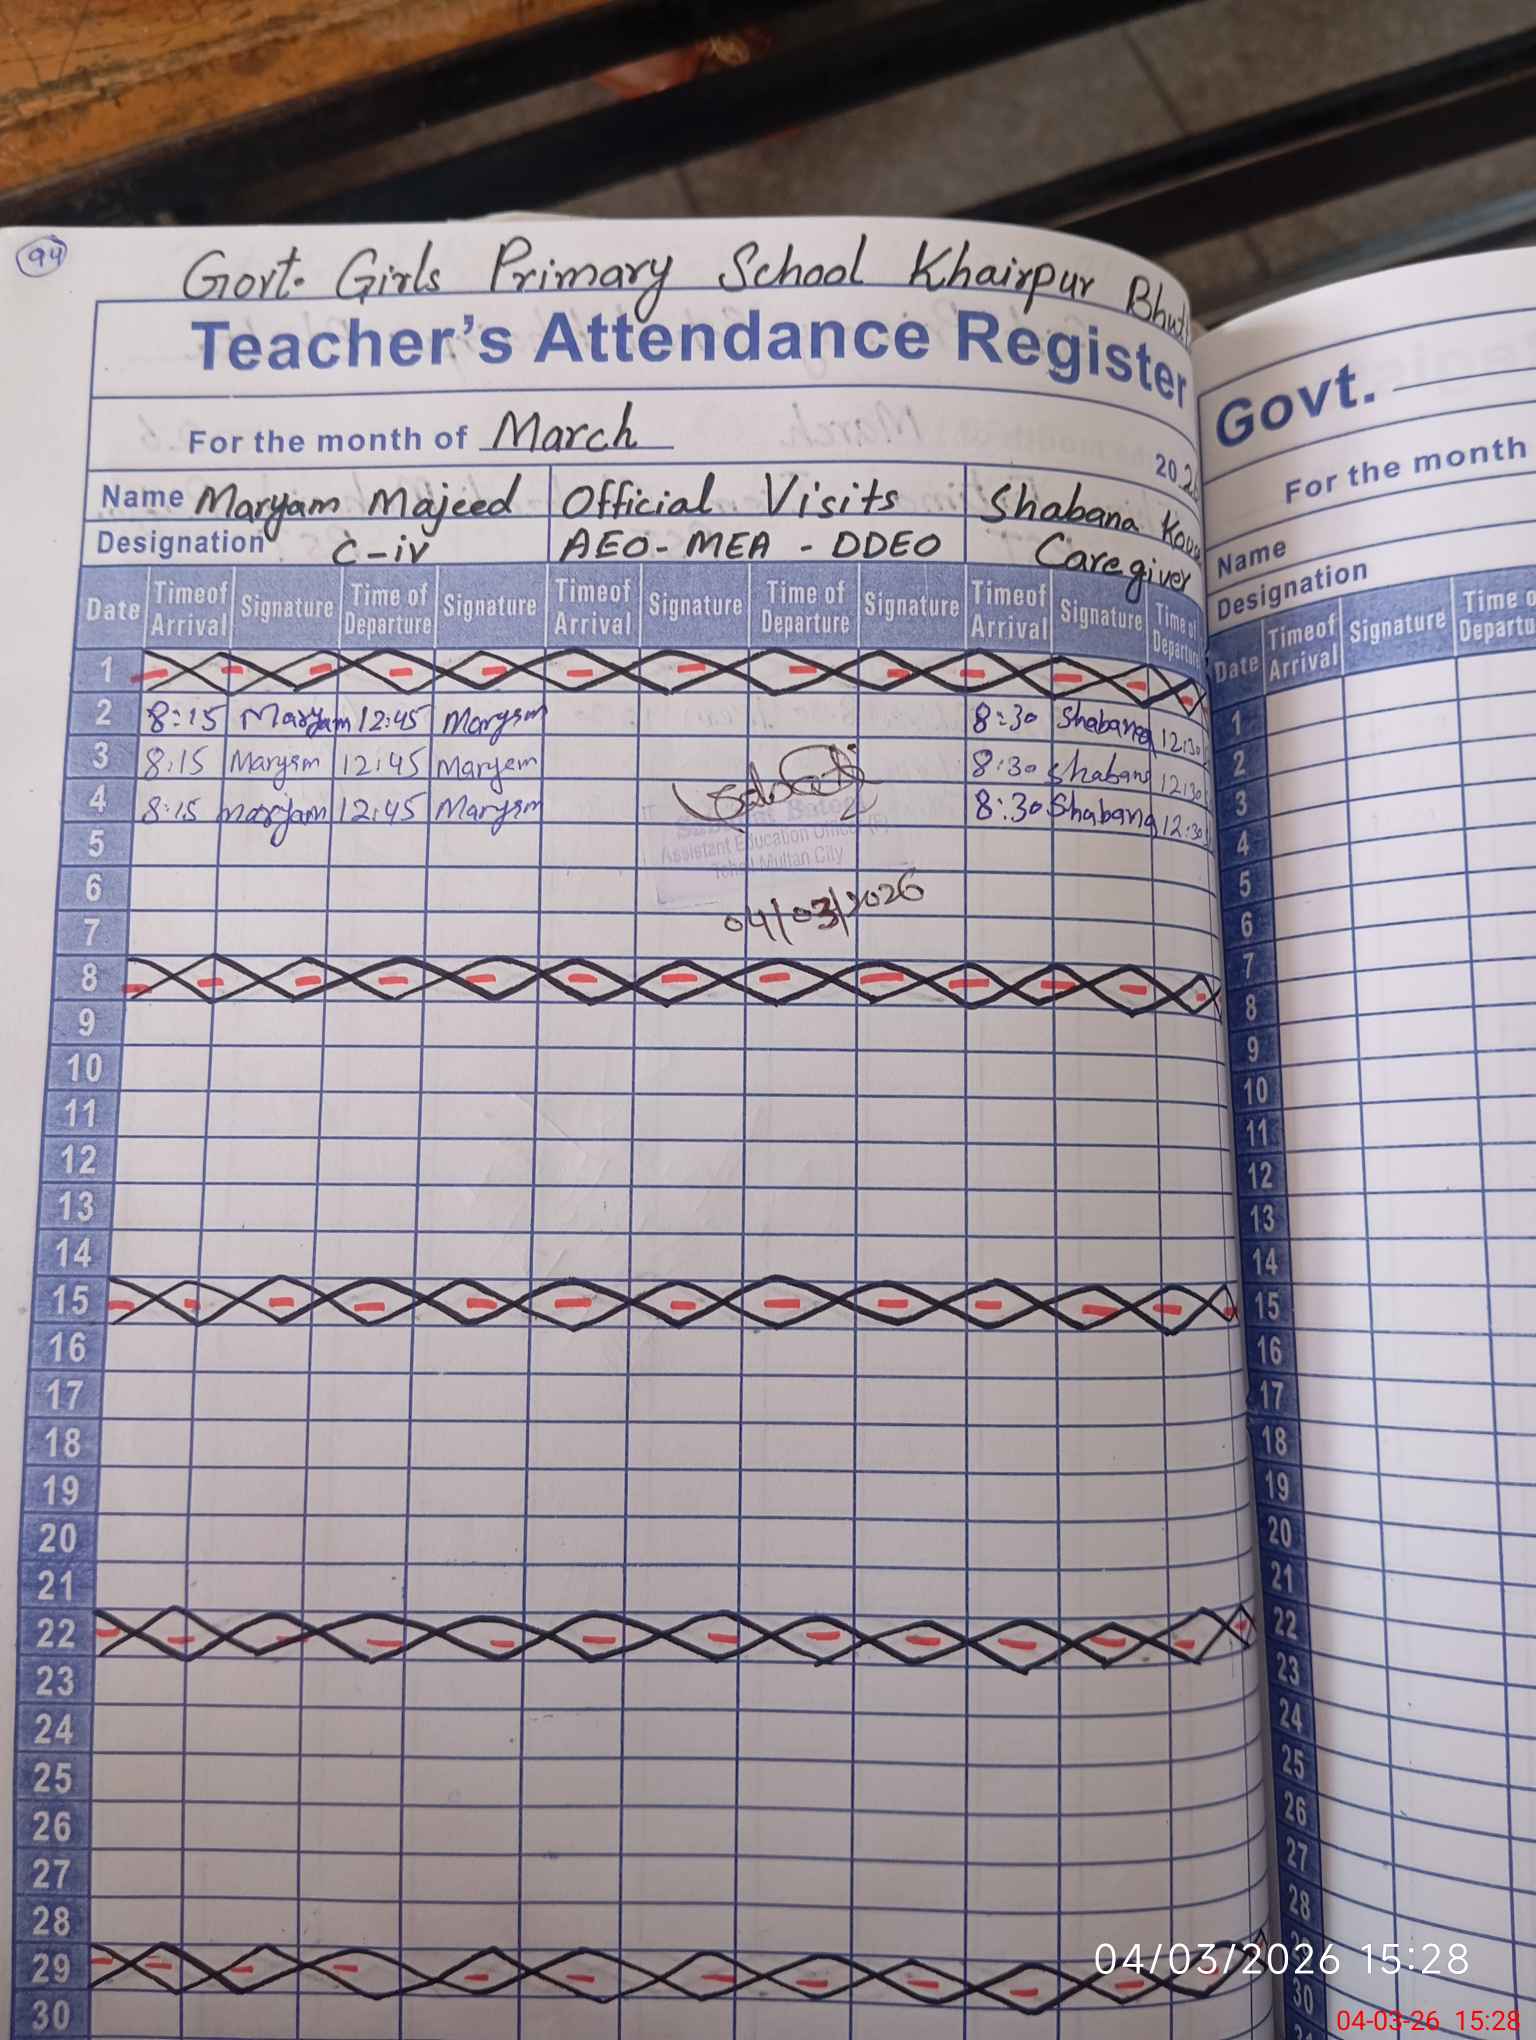 94
Govt. Girls Primary School Khairpur
Teacher's Attendance Register
For the month of March
Name Maryam Majeed Official Visits Shabana
Designation C-iv AEO - MEA - DDEO Caregiver
Date Timeof Arrival Signature Time of Departure Signature Timeof Arrival Signature Time of Departure Signature Timeof Arrival Signature Time of Departure
1
2 8:15 Maryam 12:45 Maryam 8:30 Shabana 12:30
3 8:15 Maryam 12:45 Maryam 8:30 Shabana 12:30
4 8:15 Maryam 12:45 Maryam 8:30 Shabana 12:30
Assistant Education Officer (F)
Tehsil Multan City
5
6
04/03/2026
7
8
9
10
11
12
13
14
15
16
17
18
19
20
21
22
23
24
25
26
27
28
29
30
Govt.
For the month
Name
Designation
Date Timeof Arrival Signature
1
2
3
4
5
6
7
8
9
10
11
12
13
14
15
16
17
18
19
20
21
22
23
24
25
26
27
28
30
04/03/2026 15:28
04-03-26 15:28